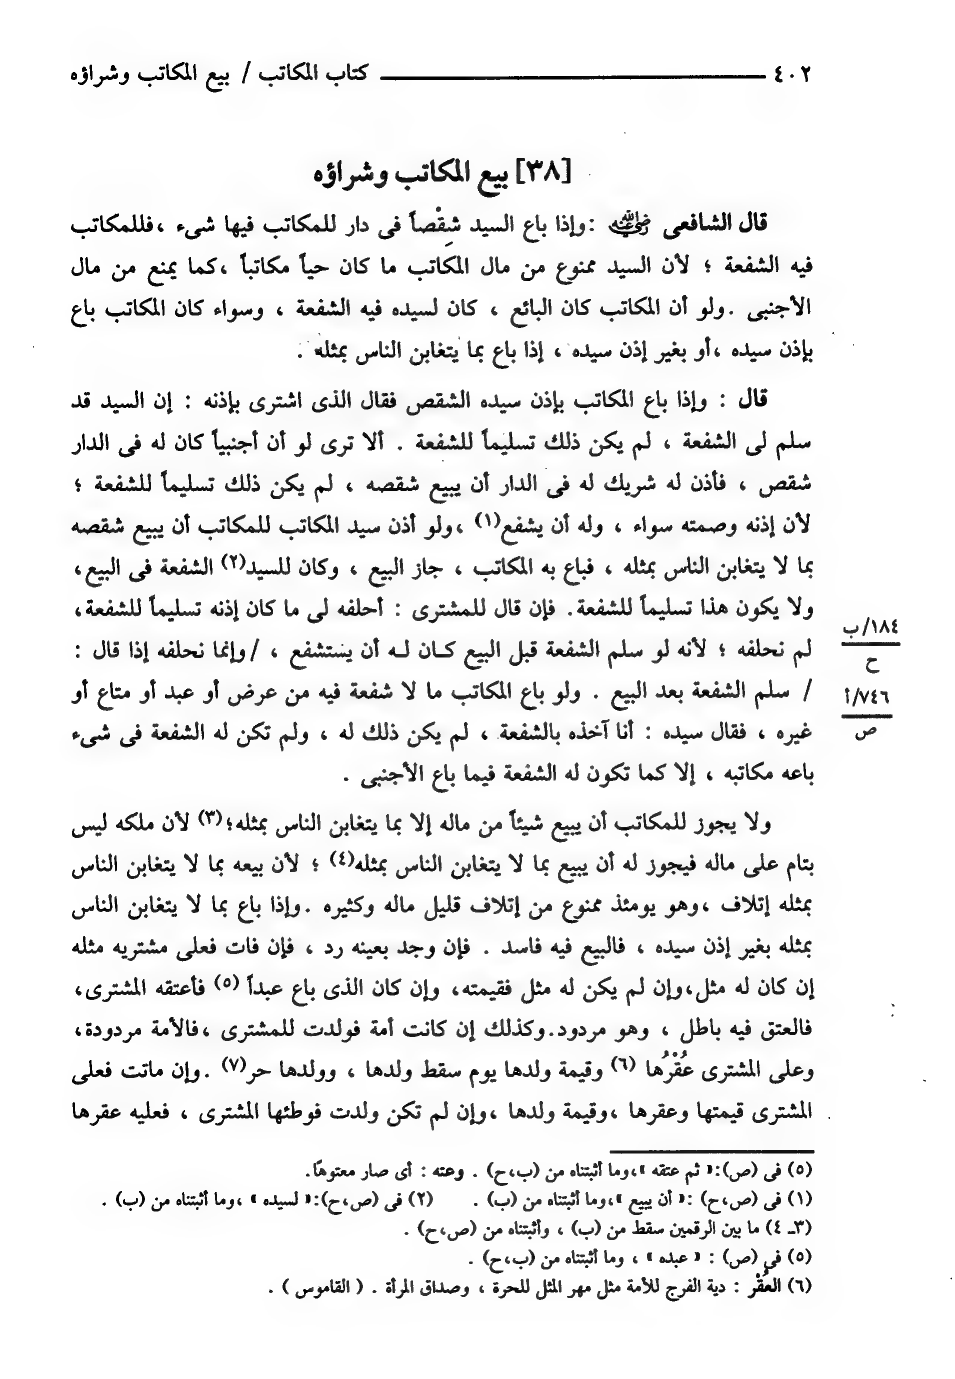 ٤٠٢ ــــــــــــــــــــ كتاب المكاتب / بيع المكاتب وشراؤه
[٣٨] بيع المكاتب وشراؤه
قال الشافعى رضي الله عنه : وإذا باع السيد شِقْصاً فى دار للمكاتب فيها شىء ، فللمكاتب
فيه الشفعة ؛ لأن السيد ممنوع من مال المكاتب ما كان حياً مكاتباً ، كما يمنع من مال
الأجنبى . ولو أن المكاتب كان البائع ، كان لسيده فيه الشفعة ، وسواء كان المكاتب باع
بإذن سيده ، أو بغير إذن سيده ، إذا باع بما يتغابن الناس بمثله .
قال : وإذا باع المكاتب بإذن سيده الشقص فقال الذى اشترى بإذنه : إن السيد قد
سلم لى الشفعة ، لم يكن ذلك تسليماً للشفعة . ألا ترى لو أن أجنبياً كان له فى الدار
شقص ، فأذن له شريك له فى الدار أن يبيع شقصه ، لم يكن ذلك تسليماً للشفعة ؛
لأن إذنه وصمته سواء ، وله أن يشفع(١) ، ولو أذن سيد المكاتب للمكاتب أن يبيع شقصه
بما لا يتغابن الناس بمثله ، فباع به المكاتب ، جاز البيع ، وكان للسيد(٢) الشفعة فى البيع،
ولا يكون هذا تسليماً للشفعة. فإن قال للمشترى : أحلفه لى ما كان إذنه تسليماً للشفعة،
لم نحلفه ؛ لأنه لو سلم الشفعة قبل البيع كان له أن يستشفع ، / وإنما نحلفه إذا قال :
/ سلم الشفعة بعد البيع . ولو باع المكاتب ما لا شفعة فيه من عرض أو عبد أو متاع أو
غيره ، فقال سيده : أنا آخذه بالشفعة ، لم يكن ذلك له ، ولم تكن له الشفعة فى شىء
باعه مكاتبه ، إلا كما تكون له الشفعة فيما باع الأجنبى .
١٨٤/ب
ح
٧٤٦/أ
ص
ولا يجوز للمكاتب أن يبيع شيئاً من ماله إلا بما يتغابن الناس بمثله؛(٣) لأن ملكه ليس
بتام على ماله فيجوز له أن يبيع بما لا يتغابن الناس بمثله(٤) ؛ لأن بيعه بما لا يتغابن الناس
بمثله إتلاف ، وهو يومئذ ممنوع من إتلاف قليل ماله وكثيره . وإذا باع بما لا يتغابن الناس
بمثله بغير إذن سيده ، فالبيع فيه فاسد . فإن وجد بعينه رد ، فإن فات فعلى مشتريه مثله
إن كان له مثل، وإن لم يكن له مثل فقيمته، وإن كان الذى باع عبداً (٥) فأعتقه المشترى،
فالعتق فيه باطل ، وهو مردود. وكذلك إن كانت أمة فولدت للمشترى ، فالأمة مردودة،
وعلى المشترى عُقْرُها (٦) وقيمة ولدها يوم سقط ولدها ، وولدها حر(٧) . وإن ماتت فعلى
المشترى قيمتها وعقرها ، وقيمة ولدها ، وإن لم تكن ولدت فوطئها المشترى ، فعليه عقرها
(٥) فى (ص):« ثم عتقه »، وما أثبتناه من (ب،ح) . وعته : أى صار معتوهًا.
(١) فى (ص،ح) :« أن يبيع »، وما أثبتناه من (ب) . (٢) فى (ص،ح):« لسيده » ، وما أثبتناه من (ب) .
(٣ـ ٤) ما بين الرقمين سقط من (ب) ، وأثبتناه من (ص،ح) .
(٥) فى (ص) : « عبده » ، وما أثبتناه من (ب،ح) .
(٦) العُقْر : دية الفرج للأمة مثل مهر المثل للحرة ، وصداق المرأة . ( القاموس ) .